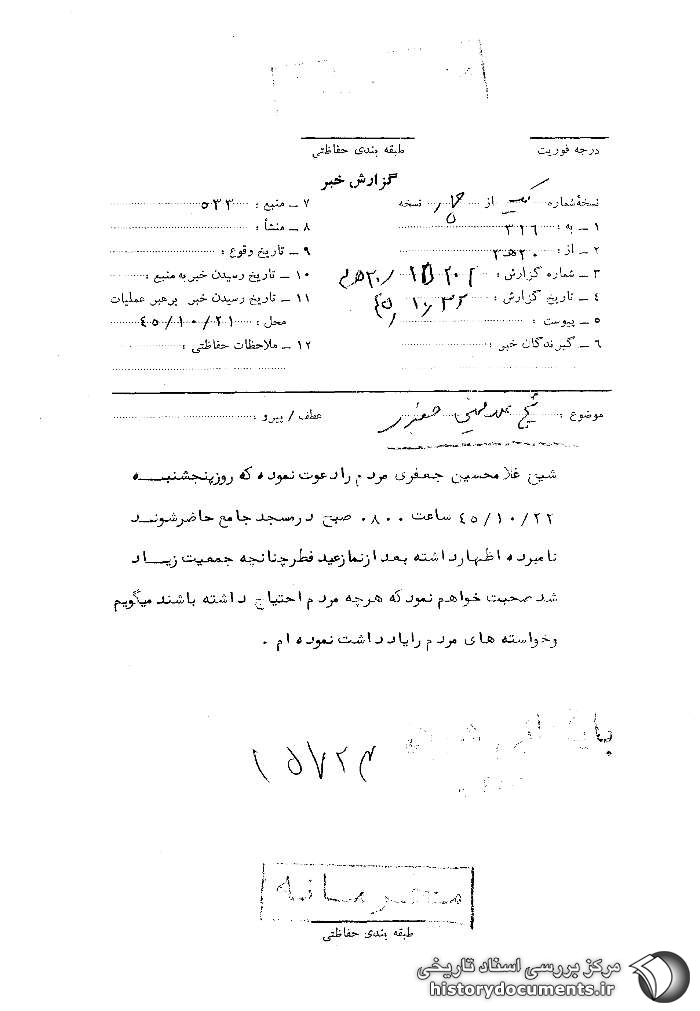 درجه فوریت
طبقه بندی حفاظتی
گزارش خبر
نسخهٔ شماره یک از چهار نسخه
۱ – به : ۳۲۶
۲ – از : ۲۰ ه ۳
۳ – شماره گزارش :
۴ – تاریخ گزارش :
۵ – پیوست :
۶ – گیرندگان خبر :
۷ – منبع : ۵۳۳
۸ – منشأ :
۹ – تاریخ وقوع :
۱۰ – تاریخ رسیدن خبر به منبع :
۱۱ – تاریخ رسیدن خبر برهبر عملیات
محل : ۴۵/۱۰/۲۱
۱۲ – ملاحظات حفاظتی :
موضوع : شیخ غلامحسین جعفری
عطف / پیرو :
شیخ غلامحسین جعفری مردم را دعوت نموده که روز پنجشنبه
۴۵/۱۰/۲۲ ساعت ۰۸۰۰ صبح در مسجد جامع حاضر شوند
نامبرده اظهار داشته بعد از نماز عید فطر چنانچه جمعیت زیاد
شد صحبت خواهم نمود که هرچه مردم احتیاج داشته باشند میگویم
وخواسته های مردم را یادداشت نموده ام .
۱۵۷۲۴
طبقه بندی حفاظتی
مرکز بررسی اسناد تاریخی
historydocuments.ir